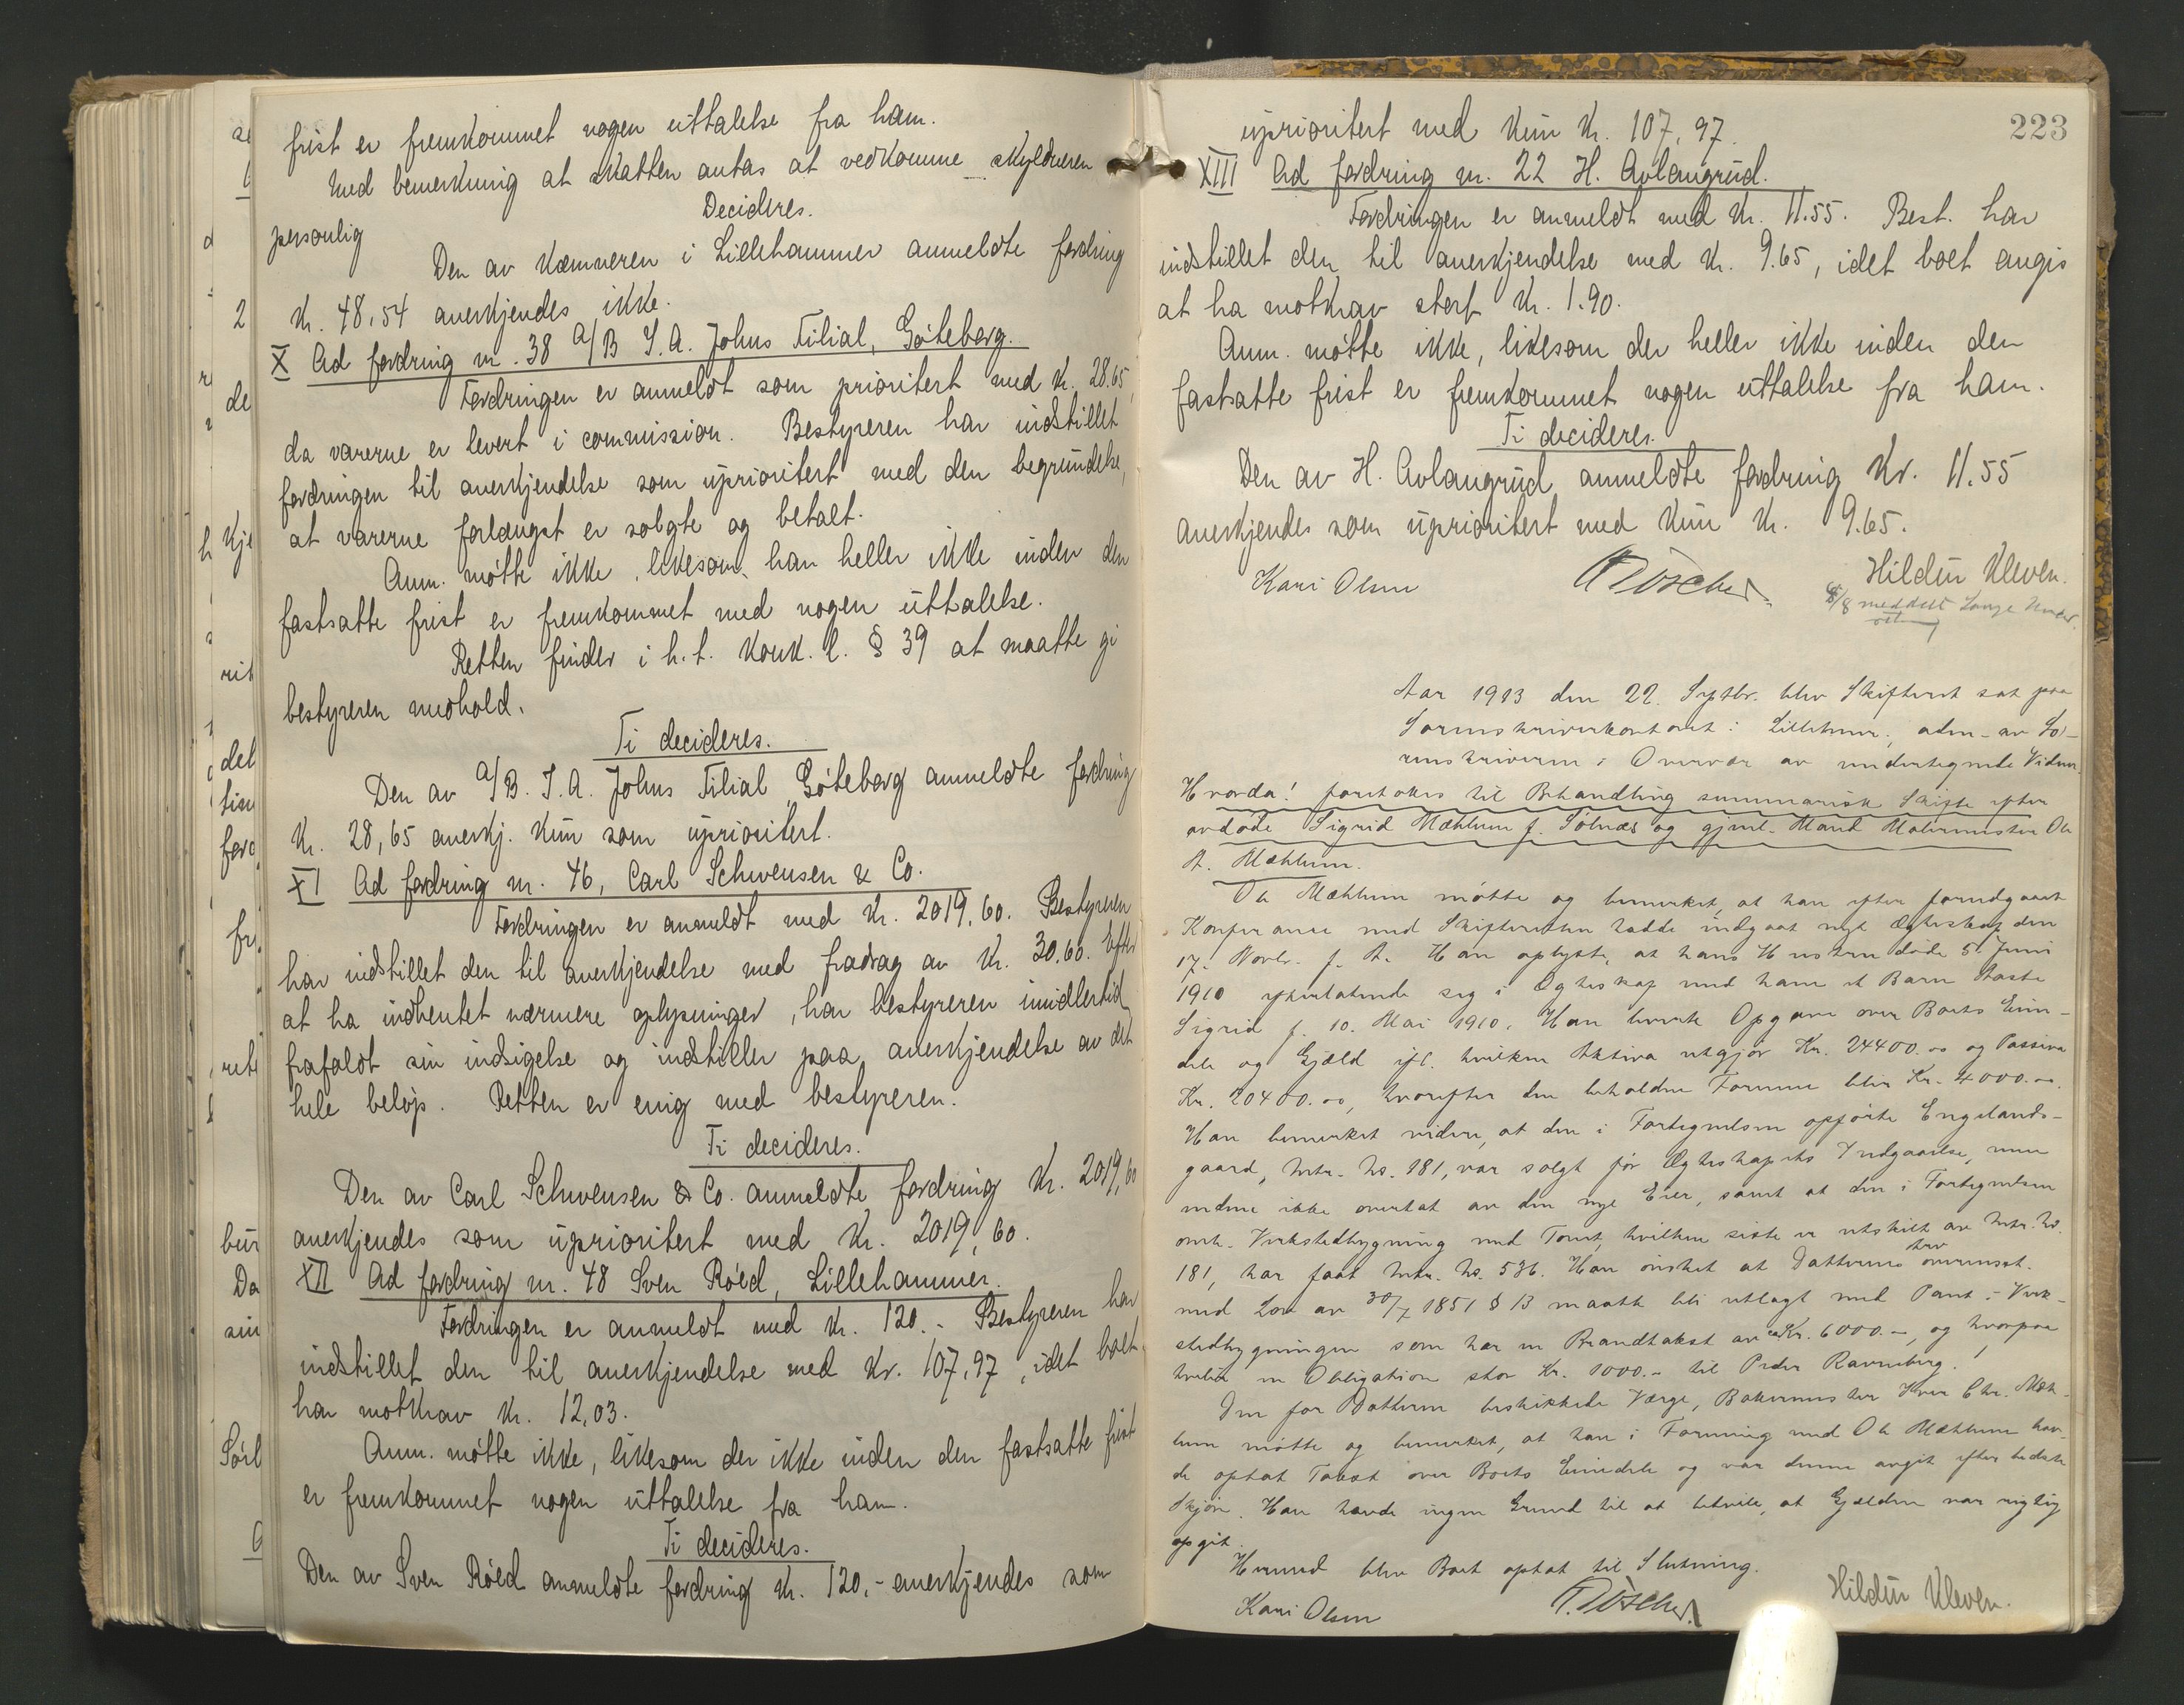 frist er fremkommet nogen uttalelse fra ham.
Med bemerkning at skatten antas at vedkomme skyldneren
personlig
Decideres.
Den av Kæmneren i Lillehammer anmeldte fordring
Kr. 48,54 anerkjendes ikke.
X Ad fordring nr. 38 A/B J.A. Johns Filial, Göteborg.
Fordringen er anmeldt som prioritert med Kr. 28.65,
da varerne er levert i commission. Bestyreren har indstillet
fordringen til anerkjendelse som uprioritert med den begrundelse,
at varerne forlængst er solgte og betalt.
Anm. møtte ikke, likesom han heller ikke inden den
fastsatte frist er fremkommet med nogen uttalelse.
Retten finder i h.t. Konk. l. § 39 at maatte gi
bestyreren medhold.
Ti decideres.
Den av A/B. J.A. Johns Filial, Göteborg anmeldte fordring
Kr. 28,65 anerkj. kun som uprioritert.
XI Ad fordring nr. 46, Carl Schwensen & Co.
Fordringen er anmeldt med Kr. 2019,60. Bestyreren
har indstillet den til anerkjendelse med fradrag av Kr. 30.60. Efter
at ha indhentet nærmere oplysninger, har bestyreren imidlertid
frafaldt sin indsigelse og indstiller paa anerkjendelse av det
hele beløp. Retten er enig med bestyreren.
Ti decideres.
Den av Carl Schwensen & Co. anmeldte fordring Kr. 2019,60
anerkjendes som uprioritert med Kr. 2019,60.
XII Ad fordring nr. 48 Sven Røed, Lillehammer.
Fordringen er anmeldt med Kr. 120.- Bestyreren har
indstillet den til anerkjendelse med Kr. 107,97, idet boet
har motkrav Kr. 12,03.
Anm. møtte ikke, likesom der ikke inden den fastsatte frist
er fremkommet nogen uttalelse fra ham.
Ti decideres.
Den av Sven Røed anmeldte fordring Kr. 120,- anerkjendes som
223
uprioritert med kun Kr. 107,97.
XIII Ad fordring nr. 22 H. Avlangrud.
Fordringen er anmeldt med Kr. 11.55. Best. har
indstillet den til anerkjendelse med Kr. 9.65, idet boet angis
at ha motkrav stort Kr. 1.90.
Anm. møtte ikke, likesom der heller ikke inden den
fastsatte frist er fremkommet nogen uttalelse fra ham.
Ti decideres.
Den av H. Avlangrud anmeldte fordring Kr. 11.55
anerkjendes som uprioritert med kun Kr. 9.65.
Kari Olsen
Hildur Kleven.
8/8 meddelt
Aar 1913 den 22. Septbr. blev Skifteret sat paa
Sorenskriverkontoret i Lillehmr., adm. av So-
renskriveren i Overvær av undertegnede Vidner.
Hvorda! foretokes til Behandling summarisk Skifte efter
avdøde Sigrid Mæhlum f. Sølnæs og gjenl. Mand Malermester Ole
A. Mæhlum.
Ole Mæhlum møtte og bemerket, at han efter forudgaaet
Konferanse med Skifteretten hadde indgaat nyt Ægteskap den
17. Novbr. f. A. Han oplyste, at hans Hustru døde 5. Juni
1910 efterlatende sig i Ægteskap med ham et Barn Aaste
Sigrid f. 10. Mai 1910. Han leverte Opgave over Boets Eien-
dele og Gjæld ifl. hvilken Aktiva utgjør Kr. 24400.00 og Passiva
Kr. 20400.00, hvorefter den beholdne Formue blir Kr. 4000.00.
Han bemerket videre, at den i Fortegnelsen opførte Engelands-
gaard, Mtr. No. 181, var solgt før Ægteskapets Indgaaelse, men
endnu ikke overtat av den nye Eier, samt at den i Fortegnelsen
omh. Verkstedbygning med Tomt, hvilken siste er utskilt av Mtr. No
181, har faat Mtr. No. 536. Han ønsket at Datterens Arv overensst.
med Lov av 30/7 1851 § 13 maatte bli utlagt med Pant i Verk-
stedbygningen som har en Brandtakst av ca Kr. 6000.-, og hvorpaa
hviler en Obligation stor Kr. 1000.- til Peder Ravnsborg.
Den for Datteren beskikkede Værge, Bakermester Iver Chr. Mæh-
lum møtte og bemerket, at han i Forening med Ole Mæhlum hav-
de optat Takst over Boets Eiendele og var denne avgit efter bedste
Skjøn. Han havde ingen Grund til at betvile, at Gjælden var rigtig
opgit.
Hermed blev Boet optat til Slutning.
Kari Olsen
Hildur Kleven.